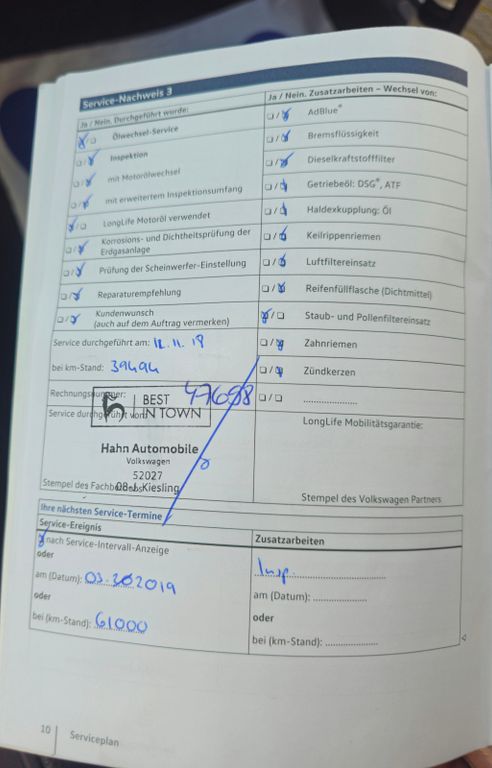 Service-Nachweis 3
Ja / Nein. Durchgeführt wurde:
Ölwechsel-Service
Inspektion
mit Motorölwechsel
mit erweitertem Inspektionsumfang
LongLife Motoröl verwendet
Korrosions- und Dichtheitsprüfung der
Erdgasanlage
Prüfung der Scheinwerfer-Einstellung
Reparaturempfehlung
Kundenwunsch
(auch auf dem Auftrag vermerken)
Service durchgeführt am: 12.11.18
bei km-Stand: 39494
Rechnungsnummer: 47698
BEST
IN TOWN
Service durchgeführt von:
Hahn Automobile
Volkswagen
52027
08 J. Kiesling
Stempel des Fachbetriebs
Ja / Nein. Zusatzarbeiten – Wechsel von:
AdBlue®
Bremsflüssigkeit
Dieselkraftstofffilter
Getriebeöl: DSG®, ATF
Haldexkupplung: Öl
Keilrippenriemen
Luftfiltereinsatz
Reifenfüllflasche (Dichtmittel)
Staub- und Pollenfiltereinsatz
Zahnriemen
Zündkerzen
....................
LongLife Mobilitätsgarantie:
Stempel des Volkswagen Partners
Ihre nächsten Service-Termine
Service-Ereignis
nach Service-Intervall-Anzeige
oder
am (Datum): 2019
oder
bei (km-Stand): 61000
Zusatzarbeiten
Insp.
am (Datum): ..................
oder
bei (km-Stand): ..................
10
Serviceplan